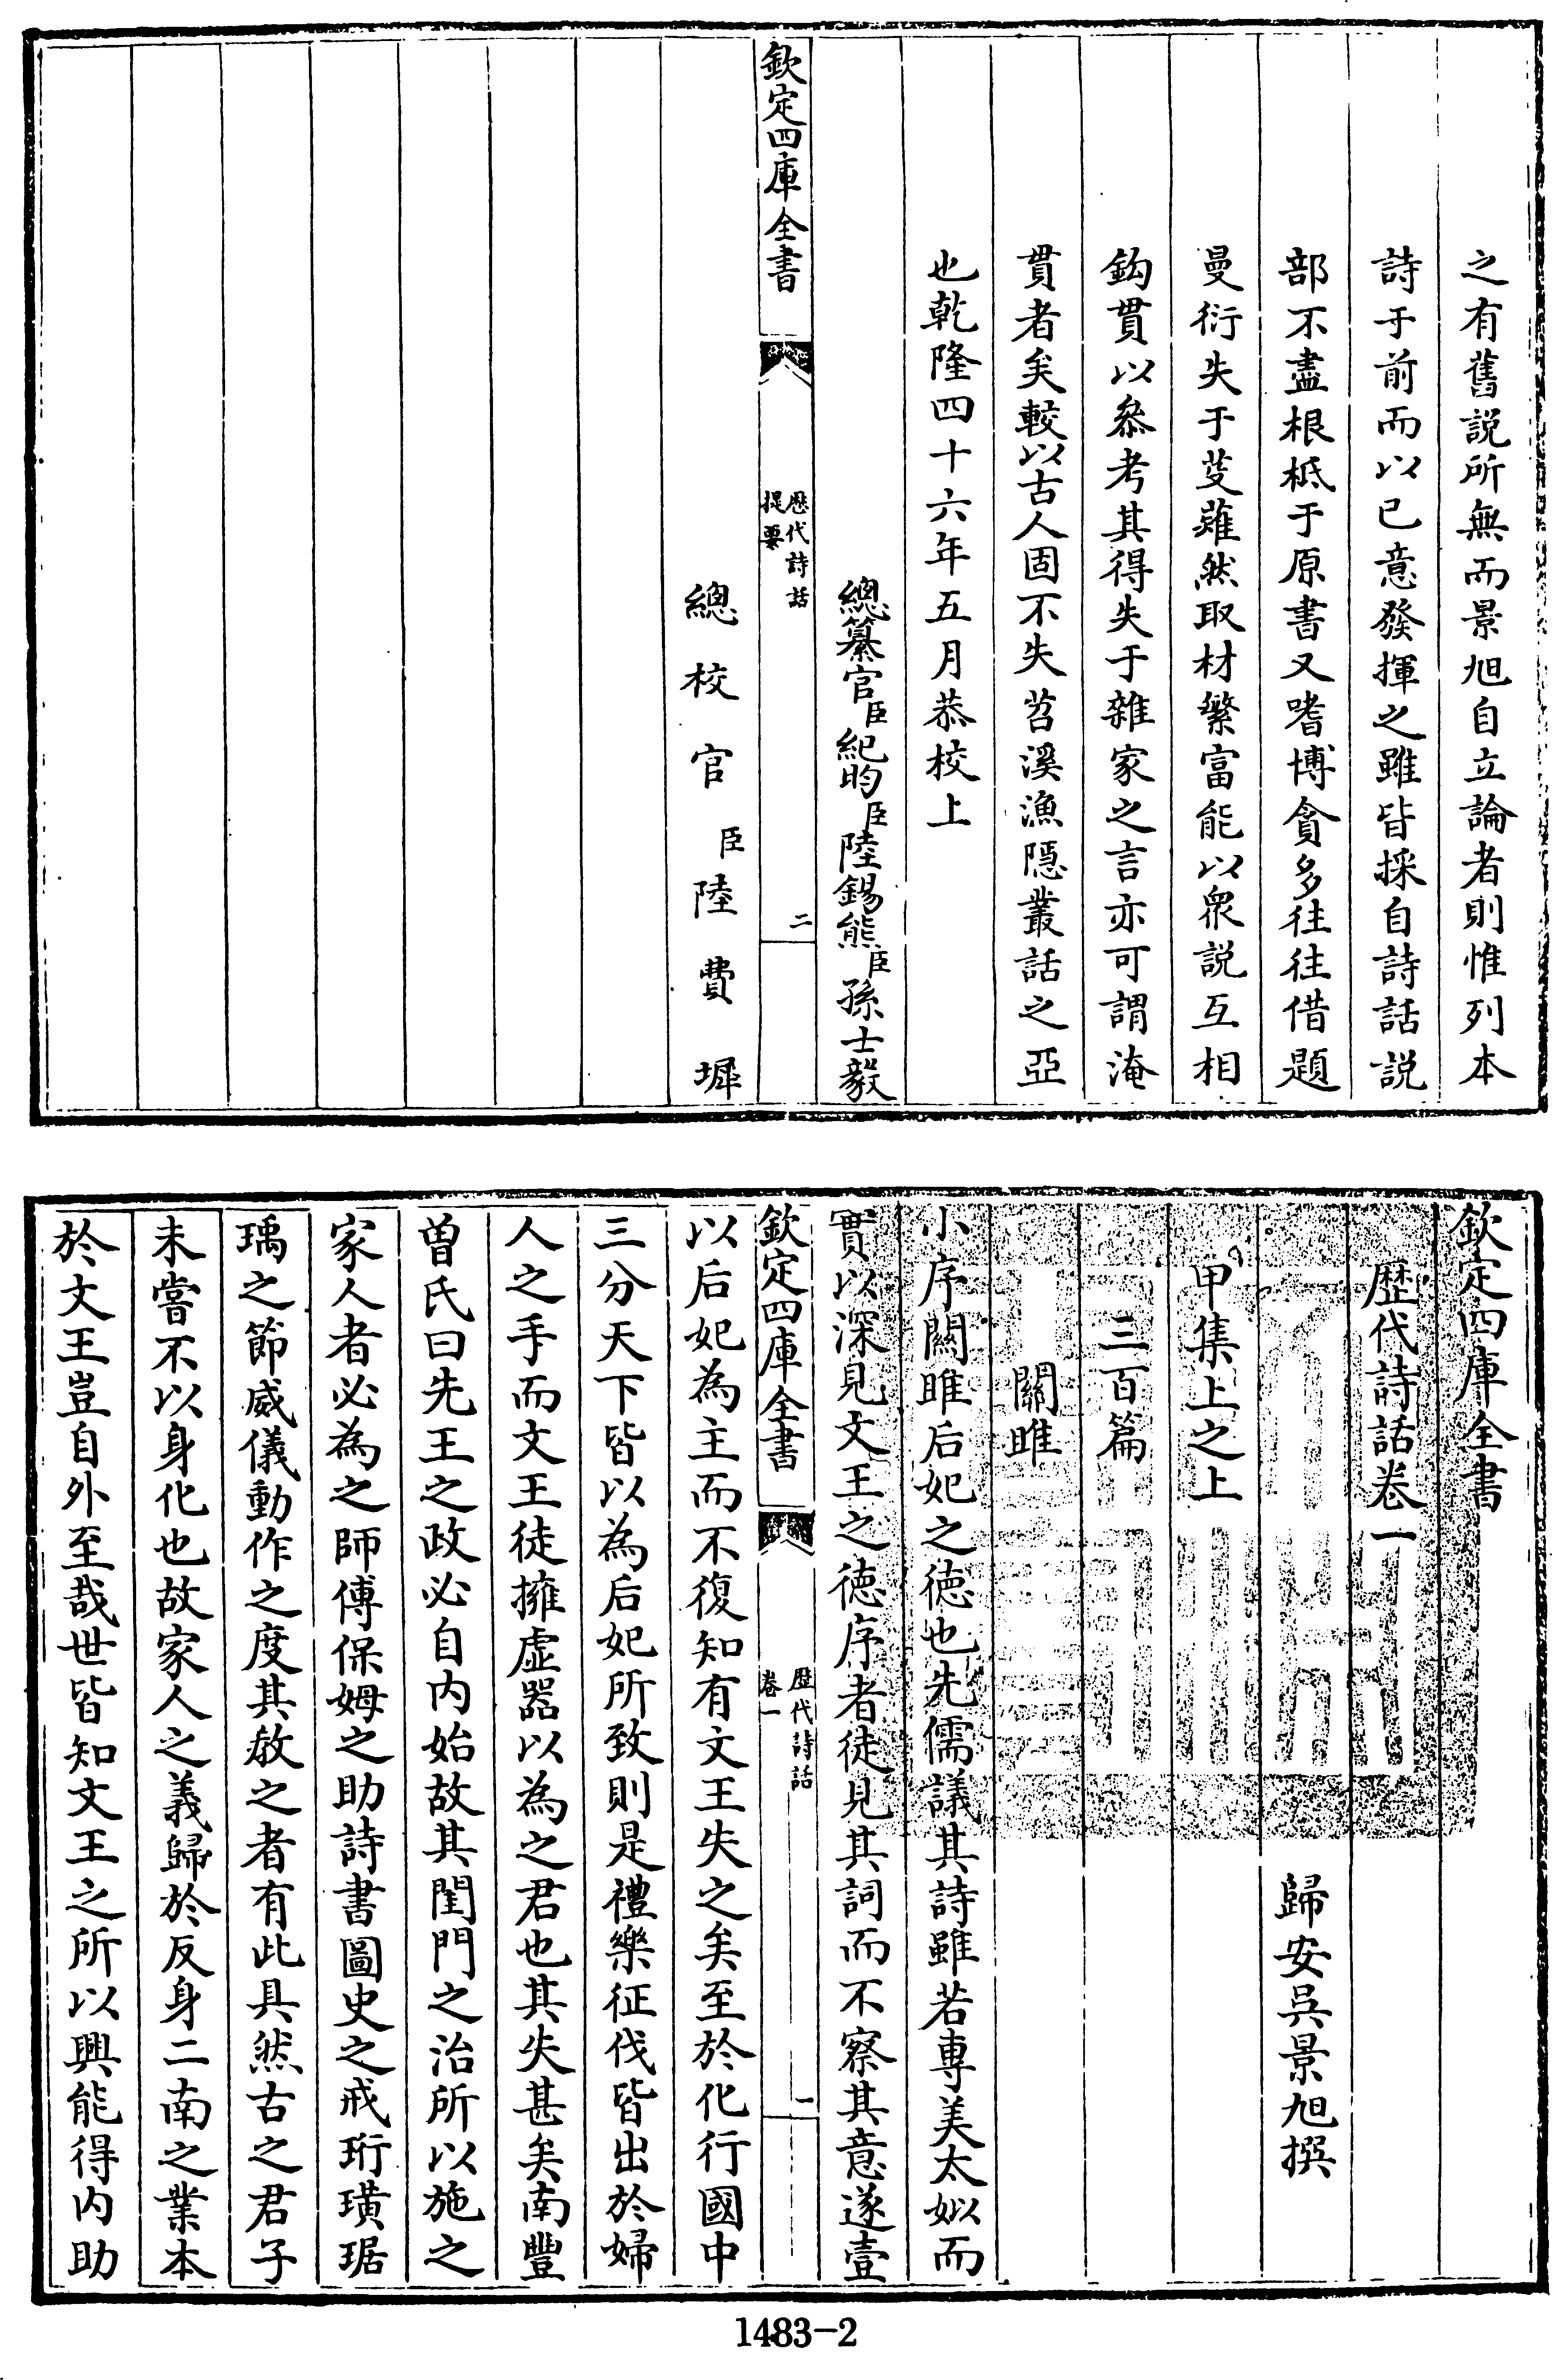 之有舊説所無而景旭自立論者則惟列本
詩于前而以已意發揮之雖皆採自詩話説
部不盡根柢于原書又嗜博貪多往往借題
曼衍失于芟薙然取材繁富能以衆説互相
鈎貫以叅考其得失于雜家之言亦可謂淹
貫者矣較以古人固不失苕溪漁隱叢話之亞
也乾隆四十六年五月恭校上
總纂官臣紀昀臣陸錫熊臣孫士毅
欽定四庫全書
歴代詩話
提要
二
總校官臣陸費墀
欽定四庫全書
歴代詩話卷一
歸安吳景旭撰
甲集上之上
三百篇
關雎
小序關雎后妃之徳也先儒議其詩雖若專美太姒而
實以深見文王之徳序者徒見其詞而不察其意遂壹
欽定四庫全書
歴代詩話
卷一
一
以后妃為主而不復知有文王失之矣至於化行國中
三分天下皆以為后妃所致則是禮樂征伐皆出於婦
人之手而文王徒擁虛器以為之君也其失甚矣南豐
曽氏曰先王之政必自内始故其閨門之治所以施之
家人者必為之師傅保姆之助詩書圖史之戒珩璜琚
瑀之節威儀動作之度其敎之者有此具然古之君子
未嘗不以身化也故家人之義歸於反身二南之業本
於文王豈自外至哉世皆知文王之所以興能得内助
1483-2